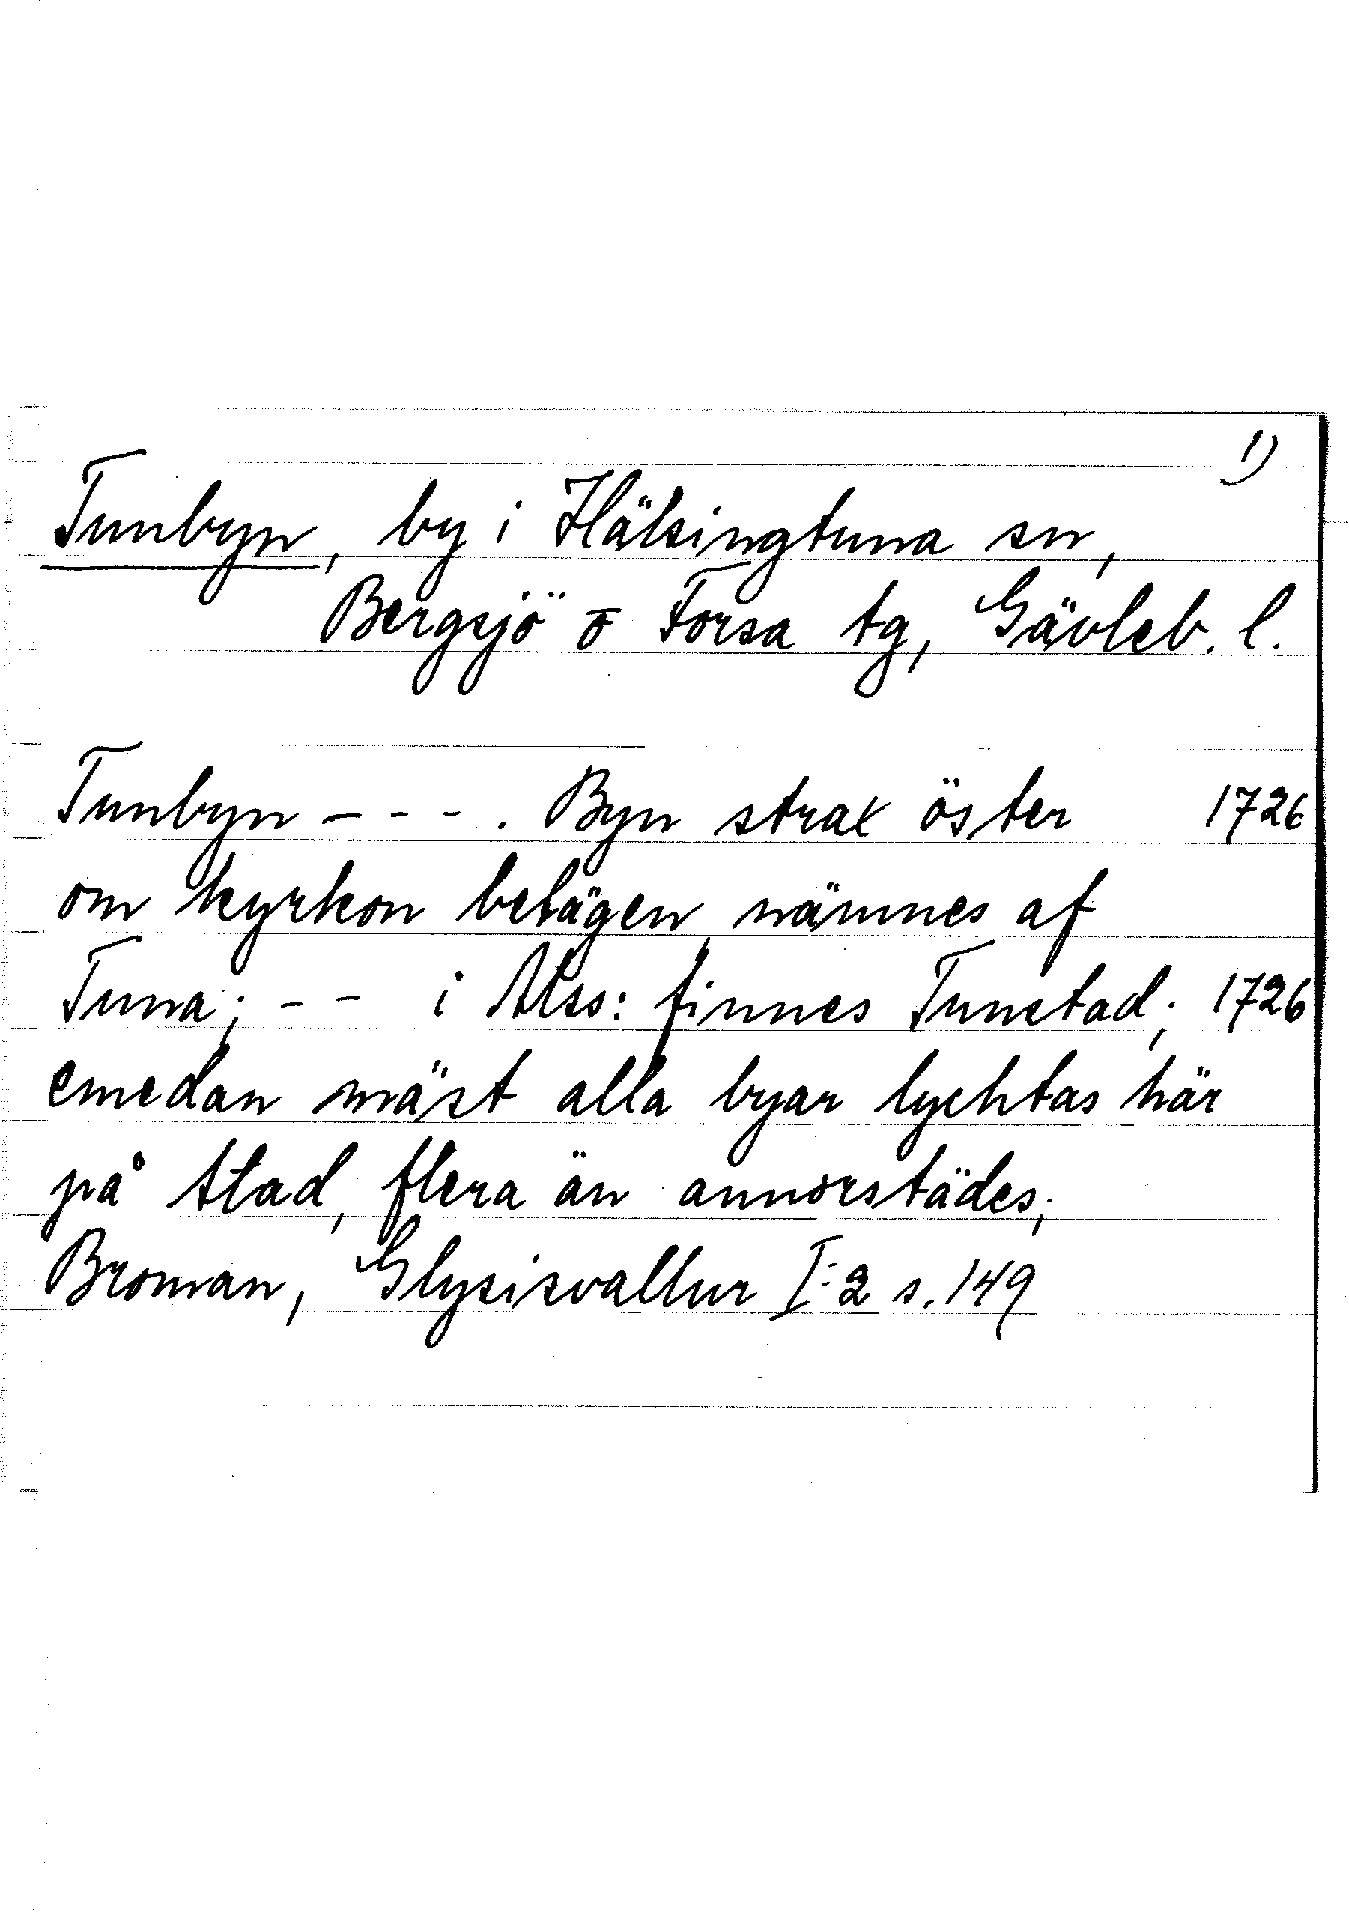 1)
Tunbyn, by i Hälsingtuna sn,
Bergsjö o Forsa tg, Gävleb. l.
Tunbyn - - - . Byn strax öster 1726
om kyrkon belägen, nämnes af
Tuna; - - i Mss: finnes Tunstad; 1726
emedan mäst alla byar lychtas här
på stad, flera än annorstädes;
Broman, Glysisvallur I:2 s. 149